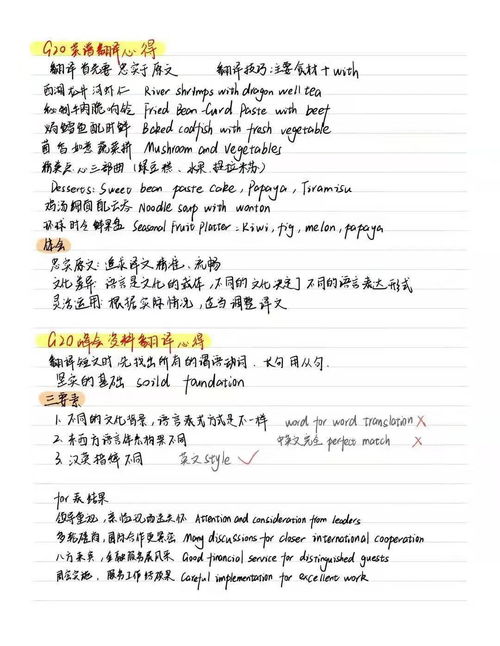 G20菜谱翻译心得
翻译首先要忠实于原文 翻译技巧:主要食材+with
西湖龙井浸虾仁 River shrimps with dragon well tea
牛肉脆响铃 Fried Bean-Curd Paste with beef
鳕鱼配时鲜 Baked codfish with fresh vegetable
菌香如意蔬菜拼 Mushroom and vegetables
精美点心三部曲(绿豆糕、水果、提拉米苏)
Desserts: Sweet bean paste cake, Papaya, Tiramisu
鸡汤 配云吞 Noodle soup with wonton
环球时令鲜果盘 Seasonal Fruit Platter: Kiwi, fig, melon, papaya
体会
忠实原文:追求译文精准、流畅
文化差异:语言是文化的载体,不同的文化决定了不同的语言表达形式
灵活运用:根据实际情况,适当调整译文
G20峰会资料翻译心得
翻译短文时,先找出所有的谓语动词.长句用从句.
坚实的基础 soild foundation
三要素
1.不同的文化背景,语言表达方式是不一样 word for word translation ×
2.东西方语言体系构架不同 中英文完全 perfect match ×
3.汉英措辞不同 英文style ✓
for 表结果
领导重视,亲临 关怀 Attention and consideration from leaders
多轮磋商,国际合作更紧密 Many discussions for closer international cooperation
八方来宾,金融服务展风采 Good financial service for distinguished guests
周密实施,服务工作结硕果 Careful implementation for excellent work